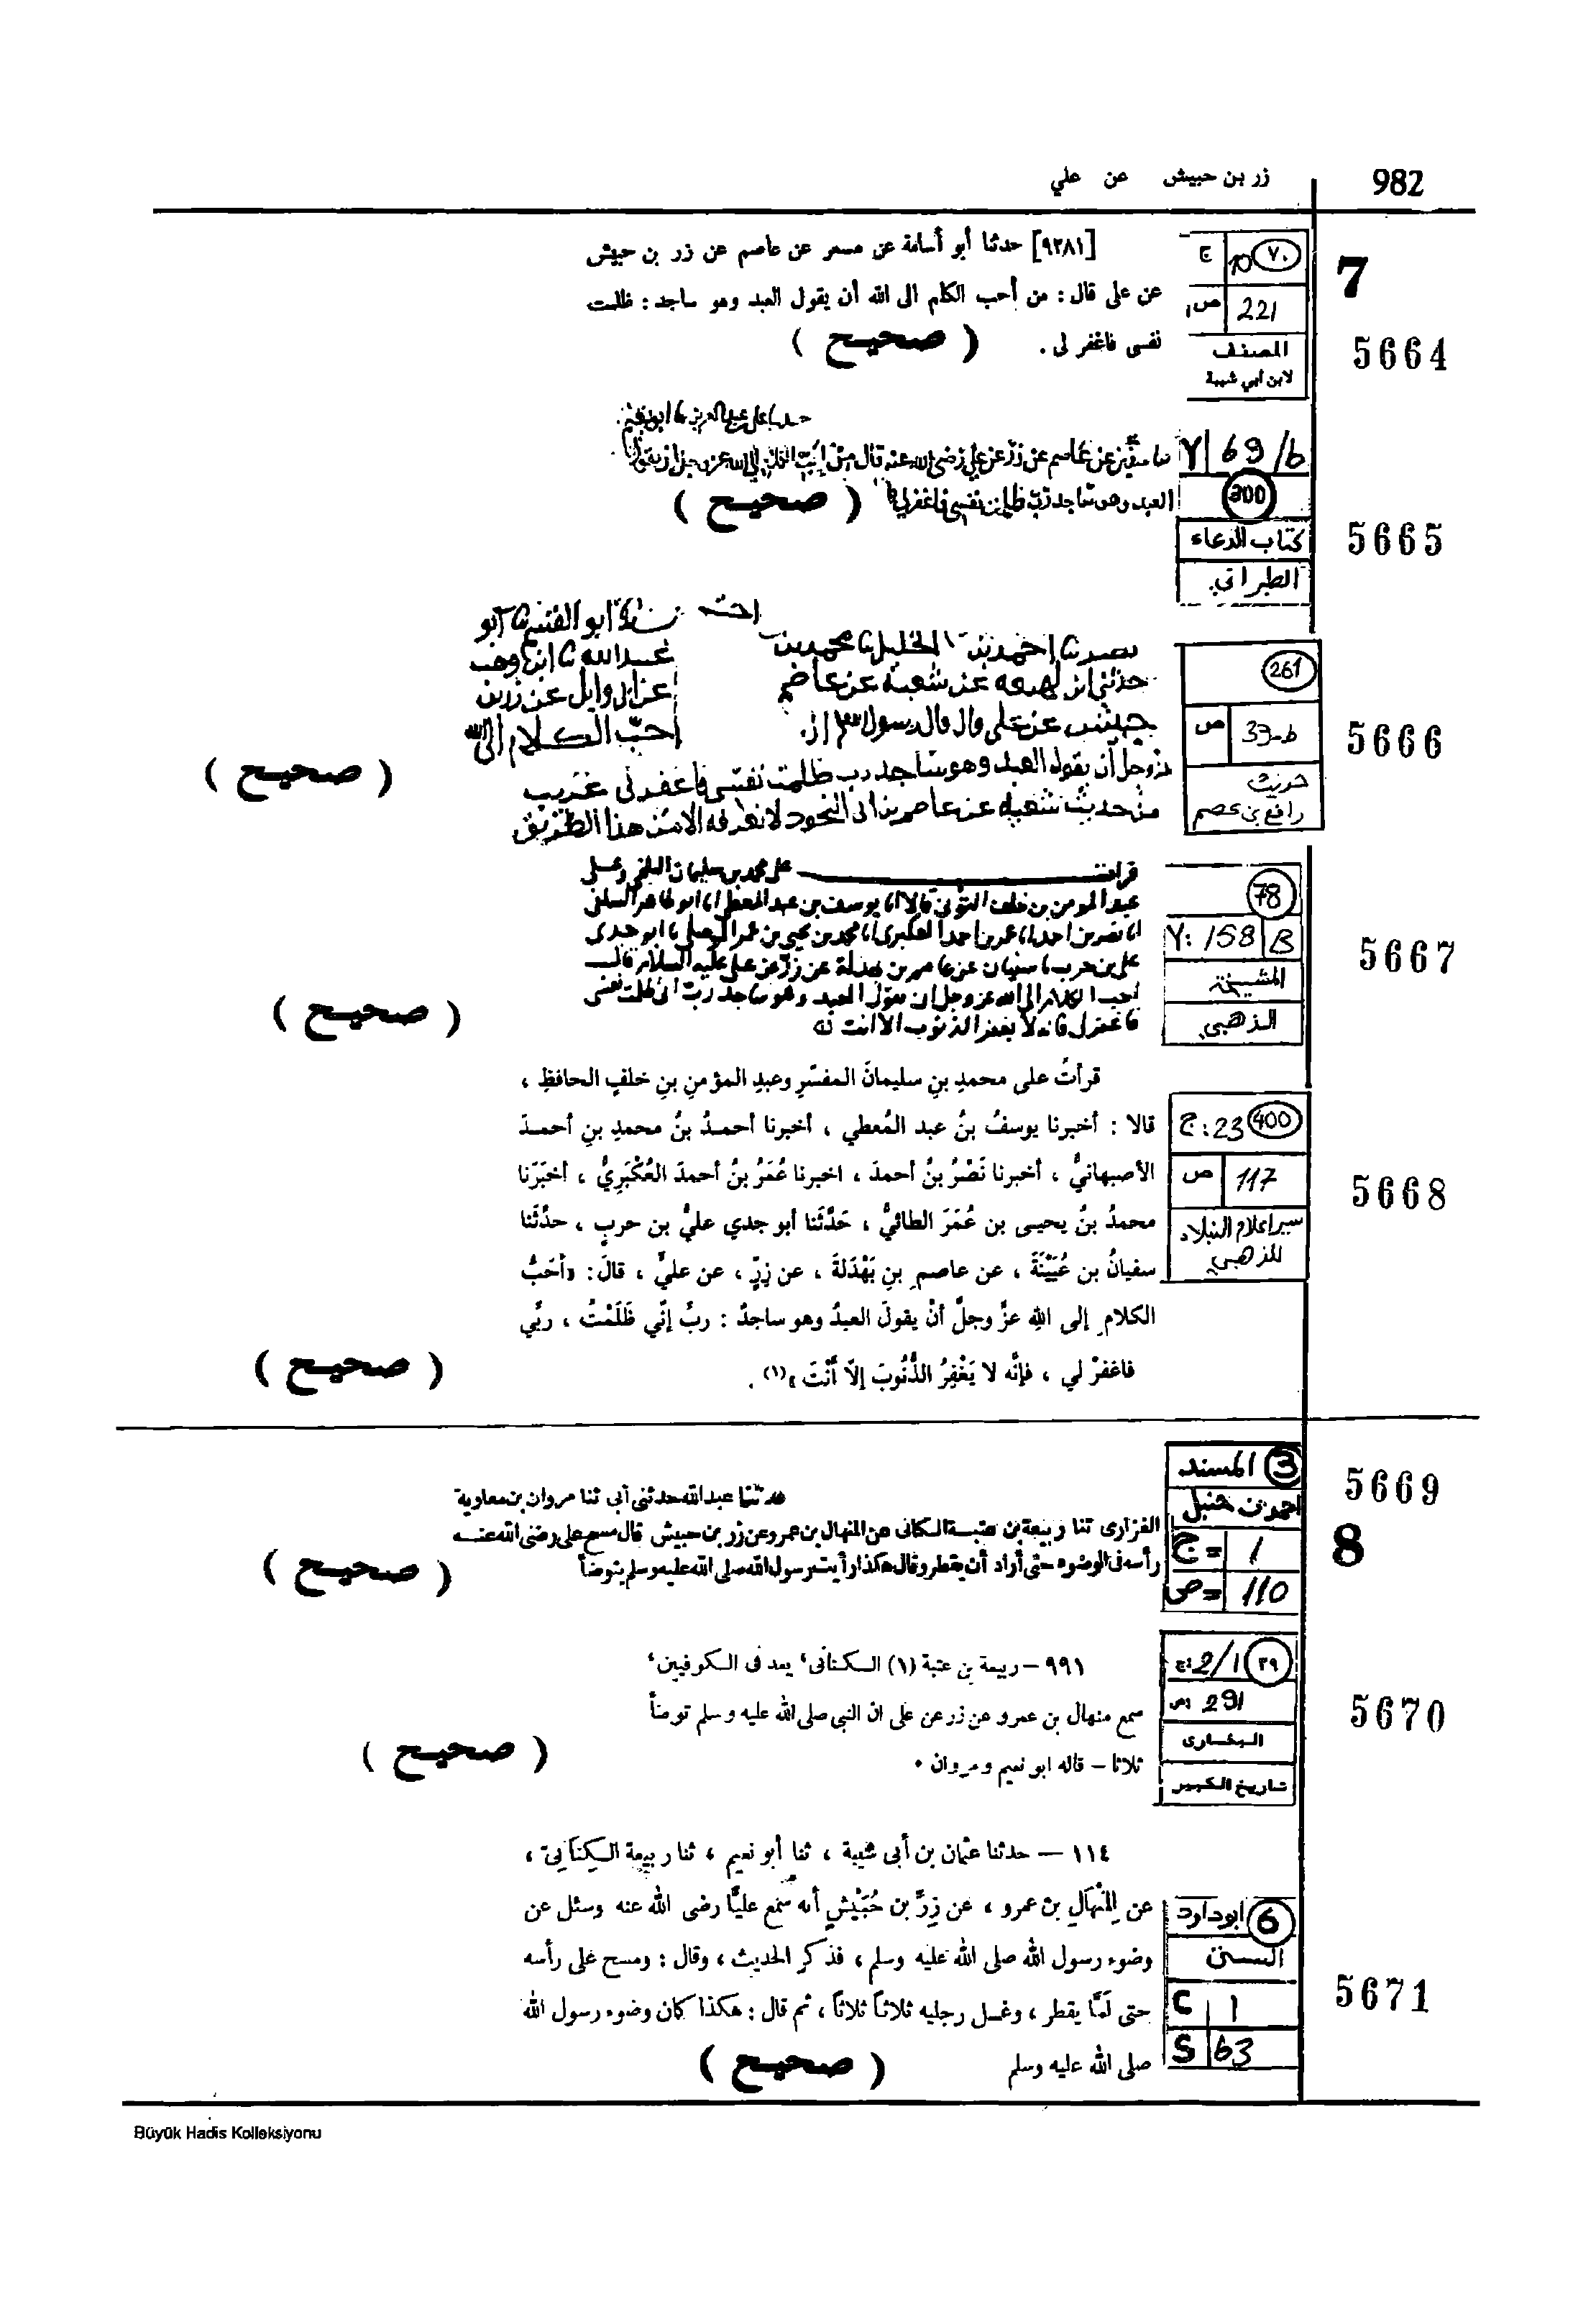 982
زر بن حبيش عن علي
7
٧٠
10 ج
221 ص
المصنف
لابن أبي شيبة
5664
[٩٢٨١] حدثنا أبو أسامة عن مسعر عن عاصم عن زر بن حبيش
عن على قال : من أحب الكلم الى الله أن يقول العبد وهو ساجد : ظلمت
نفسى فاغفر لى .
( صحيح )
69/b
300
كتاب الدعاء
الطبراني
5665
عاصم عن زر عن علي رضي الله عنه قال من أحب الكلام إلى الله عز وجل أن يقول
العبد وهو ساجد رب ظلمت نفسي فاغفر لي
( صحيح )
261
33-b ص
رافع بن عصم
5666
أبو الفتح أبو
نصر أحمد بن الخليل محمد بن
عبد الله ابن وهب
حدثني ابن لهيعة عن شعبة عن عاصم
عن أبي وايل عن زر بن
حبيش عن علي قال قال رسول الله
أحب الكلام إلى الله
عز وجل أن يقول العبد وهو ساجد رب ظلمت نفسي فاغفر لي غريب
من حديث شعبة عن عاصم بن أبي النجود لا نعرفه إلا من هذا الطريق
( صحيح )
78
158 B
المشيخة
الذهبي
5667
قرأت على محمد بن سليمان البلخي وعلى
عبد المومن بن خلف التوني قالا انا يوسف بن عبد المعطي انا ابو طاهر السلفي
انا نصر بن احمد انا عمر بن احمد العكبري انا محمد بن يحيى بن عمر الموصلي ابو جدي
علي بن حرب سفيان عن عاصم بن بهدلة عن زر عن علي عليه السلام قال
احب الكلام إلى الله عز وجل ان يقول العبد وهو ساجد رب اني ظلمت نفسي
فاغفر لي فانه لا يغفر الذنوب الا انت
( صحيح )
400
ج: 23
117 ص
سير اعلام النبلاء
للذهبي
5668
قرأتُ على محمدِ بنِ سليمانَ المفسّرِ وعبدِ المؤمنِ بنِ خلفٍ الحافظِ ،
قالا : أخبرنا يوسفُ بنُ عبد المُعطي ، أخبرنا أحمدُ بنُ محمدِ بنِ أحمدَ
الأصبهانيُّ ، أخبرنا نَصْرُ بنُ أحمدَ ، اخبرنا عُمَرُ بنُ أحمدَ العُكْبَرِيُّ ، أخبَرَنا
محمدُ بنُ يحيى بن عُمَرَ الطائيُّ ، حَدَّثَنا أبو جدي عليُّ بن حربٍ ، حدَّثَنا
سفيانُ بن عُيَيْنَةَ ، عن عاصمِ بنِ بَهْدَلةَ ، عن زِرٍّ ، عن عليٍّ ، قالَ : «أحَبُّ
الكلامِ إلى اللهِ عزَّ وجلَّ أنْ يقولَ العبدُ وهو ساجدٌ : ربِّ إنّي ظَلَمْتُ ، ربِّي
فاغفرْ لي ، فإنَّه لا يَغْفِرُ الذُّنُوبَ إلاّ أَنْتَ»(١) .
( صحيح )
3 المسند
احمد بن حنبل
ج = 1
ص = 110
5669
8
حدثنا عبد الله حدثنى أبى ثنا مروان بن معاوية
الفزارى ثنا ربيعة بن عتبة الكنانى عن المنهال بن عمرو عن زر بن حبيش قال مسح على رضى الله عنه
رأسه فى الوضوء حتى أراد أن يقطر وقال هكذا رأيت رسول الله صلى الله عليه وسلم يتوضأ
( صحيح )
٣٩
ج: 2/1
ص: 291
البخارى
تاريخ الكبير
5670
٩٩١ - ربيعة بن عتبة (١) الكنانى‘ يعد فى الكوفيين‘
سمع منهال بن عمرو عن زر عن على ان النبى صلى الله عليه وسلم توضأ
ثلاثا – قاله ابو نعيم ومروان ٠
( صحيح )
6 ابو داود
السنن
C 1
S 63
5671
١١٤ — حدثنا عثمان بن أبى شيبة ، ثنا أبو نعيم ، ثنا ربيعة الكِنَانِىّ ،
عن المِنْهَالِ بن عمرو ، عن زِرِّ بن حُبَيْشٍ أنه سمع عليًّا رضى الله عنه وسئل عن
وضوء رسول الله صلى الله عليه وسلم ، فذكر الحديث ، وقال : ومسح على رأسه
حتى لَمَّا يقطر ، وغسل رجليه ثلاثاً ثلاثاً ، ثم قال : هكذا كان وضوء رسول الله
صلى الله عليه وسلم
( صحيح )
Büyük Hadis Kolleksiyonu